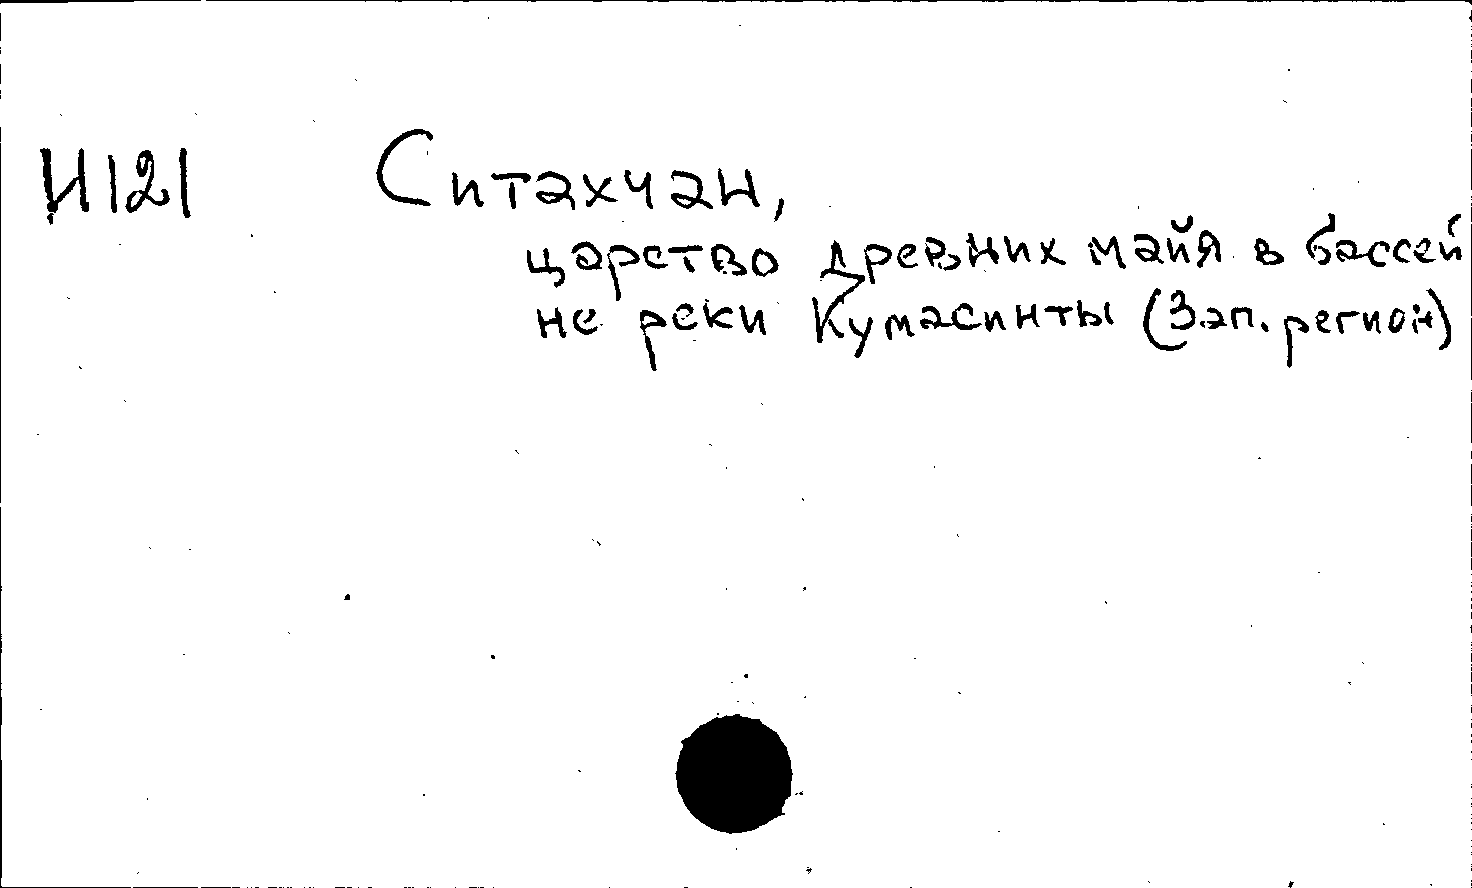 И121 Ситахчан,
царство древних майя в бассей
не реки Кумасинты (Зап. регион)